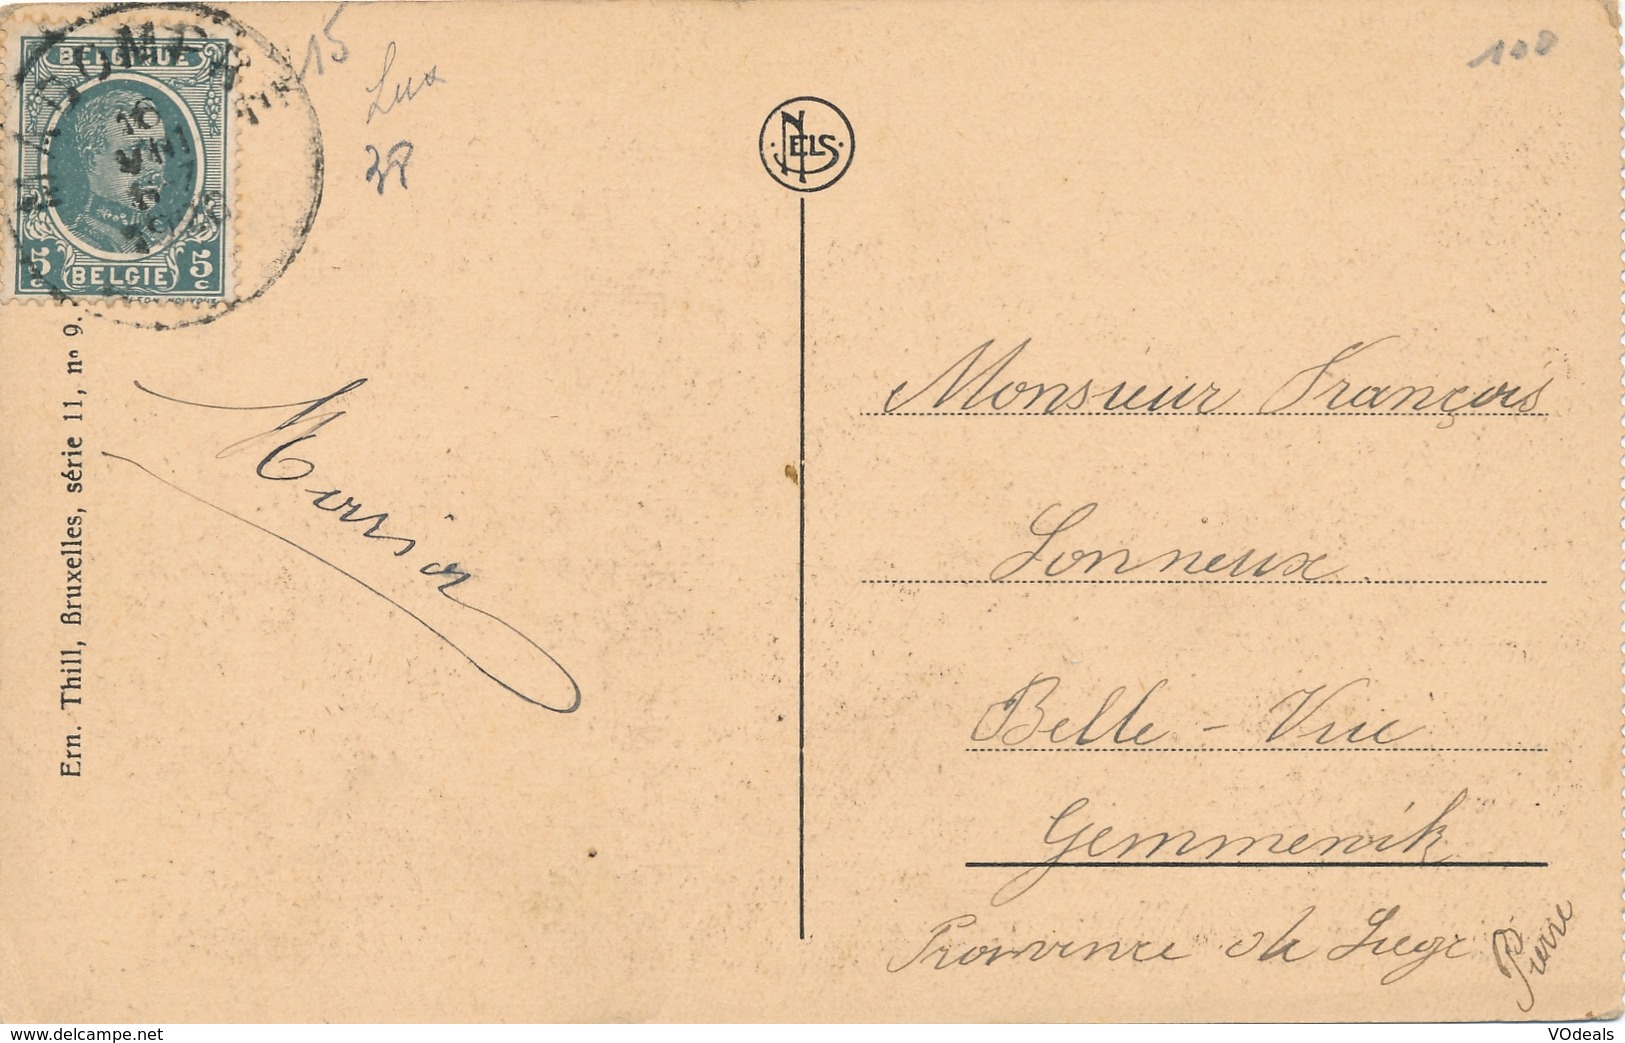 BELGIQUE
5 BELGIE 5
c c
15
Lux
38
100
NELS
Ern. Thill, Bruxelles, série 11, nº 9.
Monsieur François
Lonneux
Belle-Vue
Gemmenick
Province de Liège
Pierre
delcampe.net
VOdeals